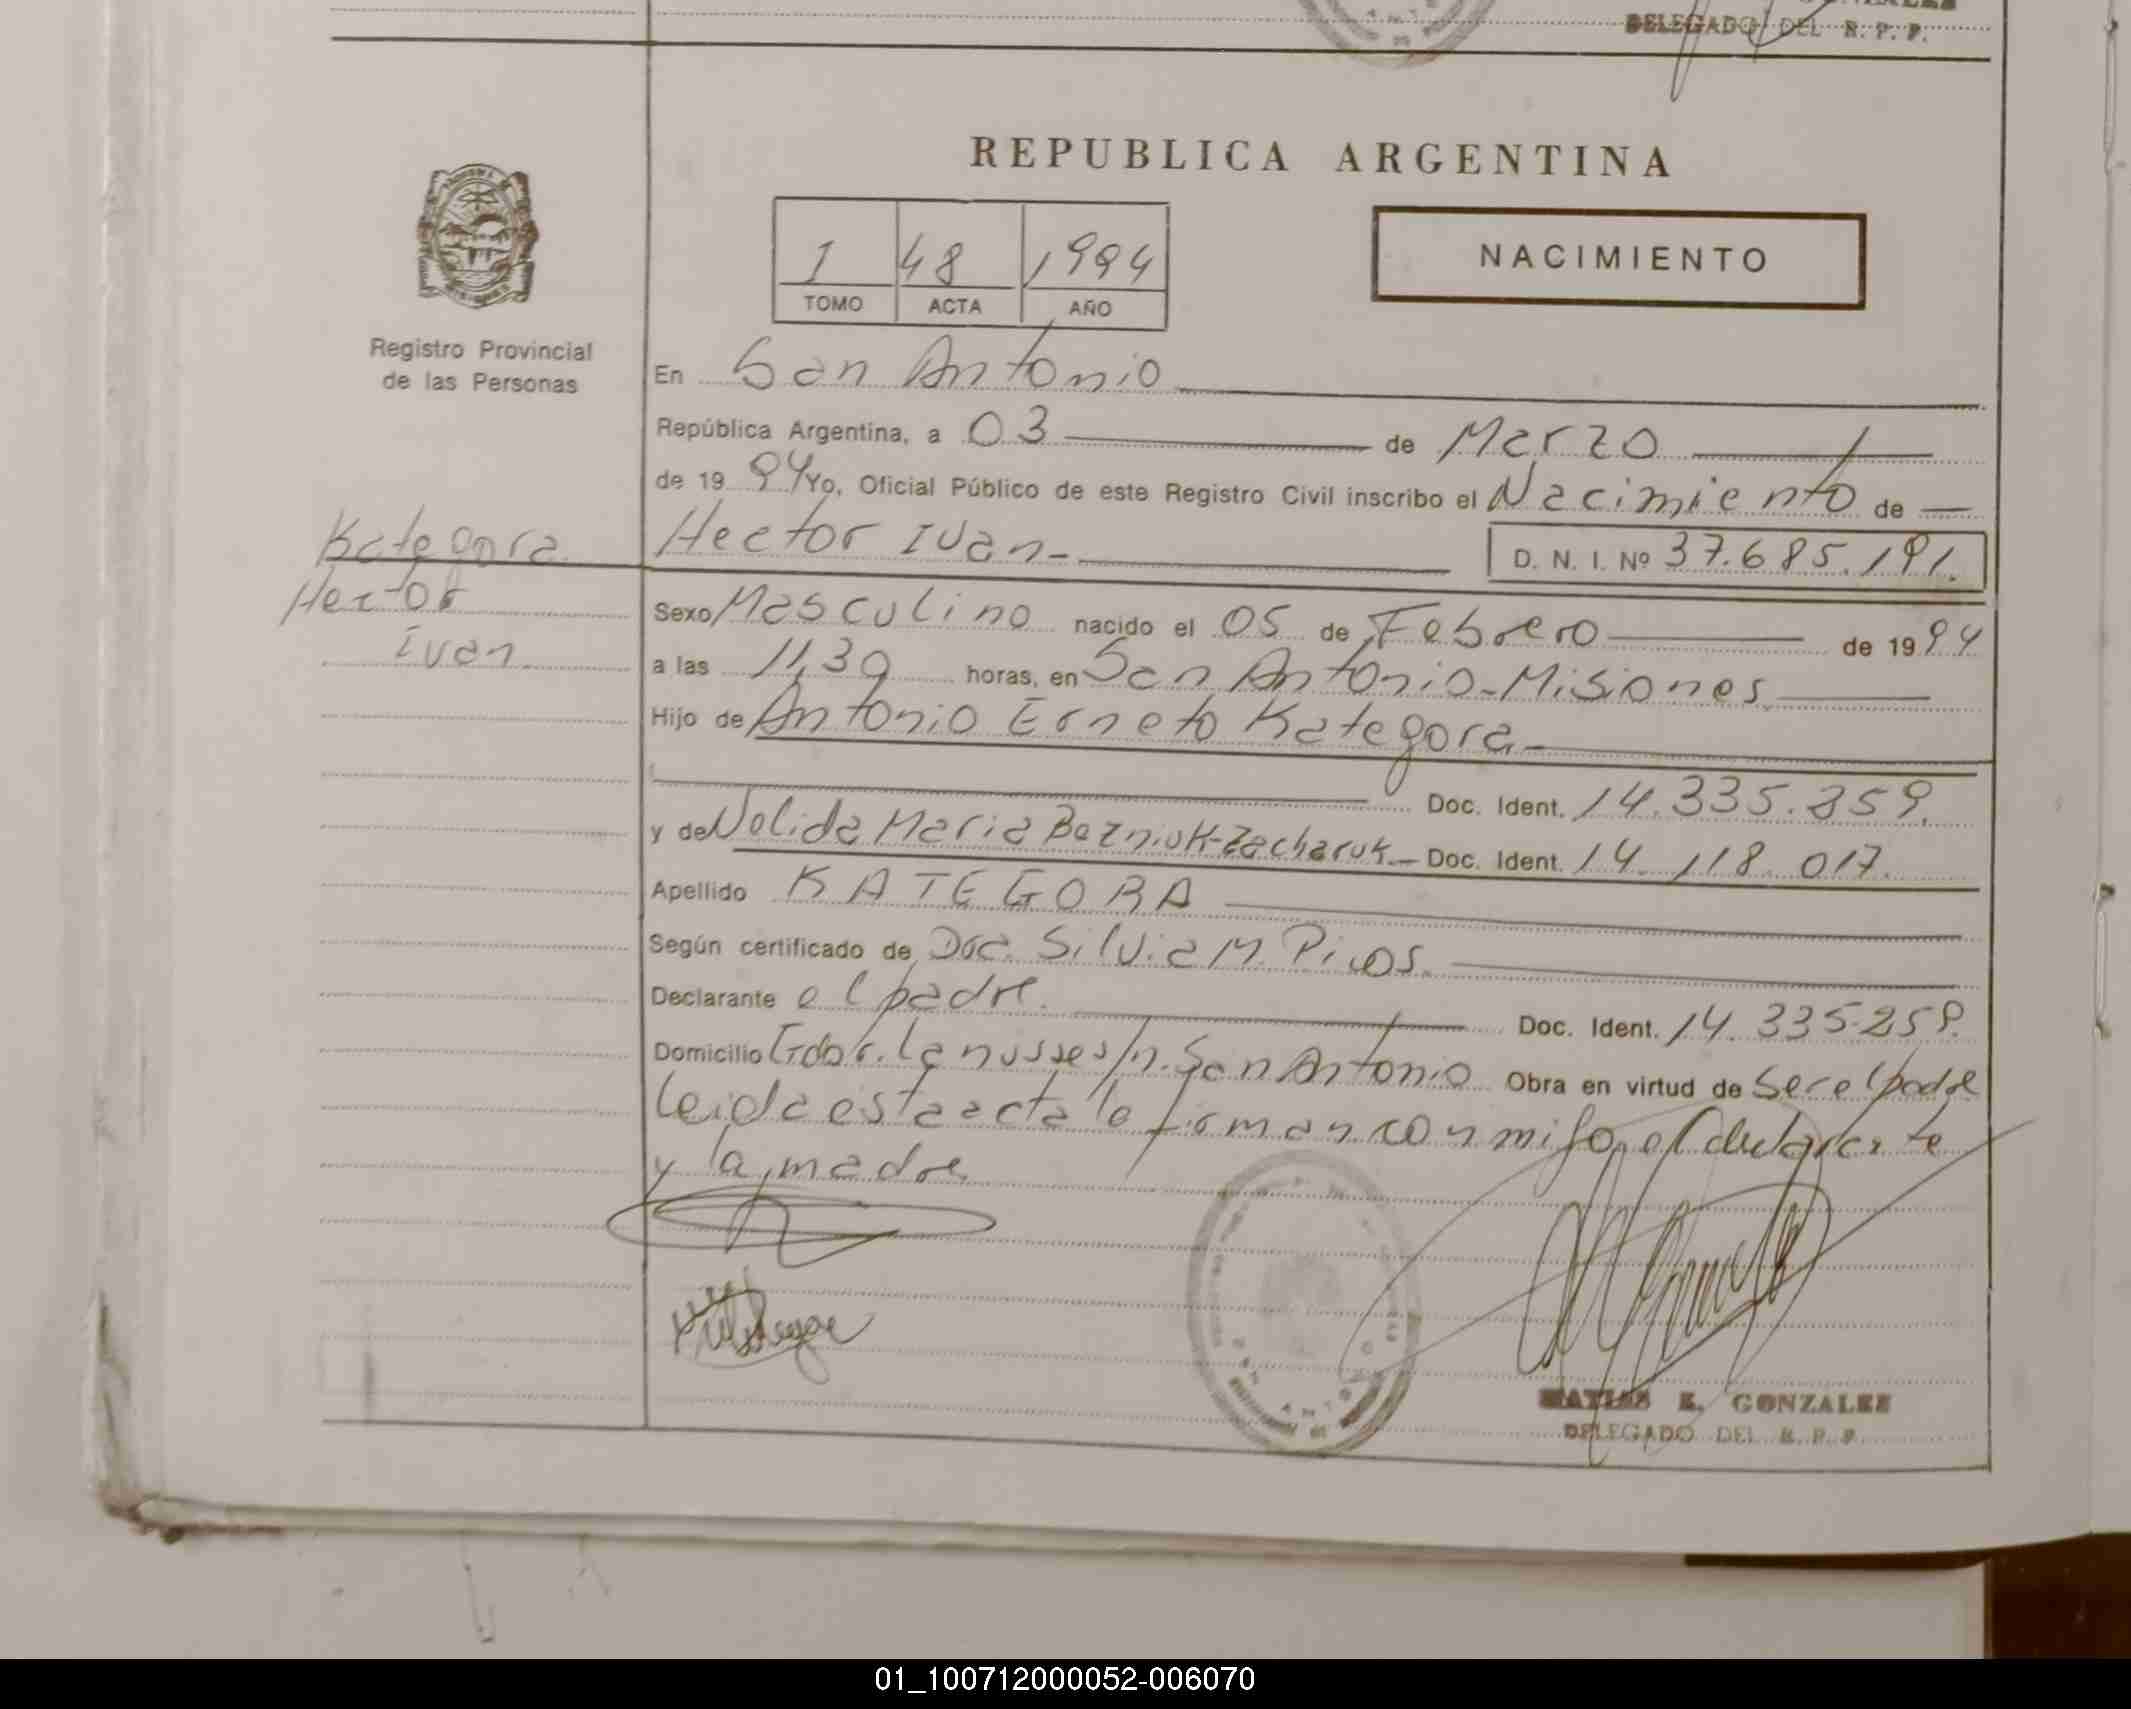 DELEGADO DEL R. P. P.
REPUBLICA ARGENTINA
1 48 1994
TOMO ACTA AÑO
NACIMIENTO
Registro Provincial
de las Personas
En San Antonio
República Argentina, a 03 de Marzo
de 19 94 Yo, Oficial Público de este Registro Civil inscribo el Nacimiento de
Kategora
Hector
Ivan
Hector Ivan-
D. N. I. Nº 37.685.191.
Sexo Masculino nacido el 05 de Febrero de 1994
a las 11,30 horas, en San Antonio-Misiones
Hijo de Antonio Erneto Kategora-
Doc. Ident. 14.335.259.
y de Nelida Maria Bazniuk-Zacharuk- Doc. Ident. 14.118.017.
Apellido KATEGORA
Según certificado de Doc. Silvia M.
Declarante el padre. Doc. Ident. 14.335.259.
Domicilio Gdor. Lanusse s/n. San Antonio Obra en virtud de ser el padre
Leida esta acta la firman conmigo, el declarante
y la madre
MATIAS E. GONZALEZ
DELEGADO DEL R. P. P.
01_100712000052-006070